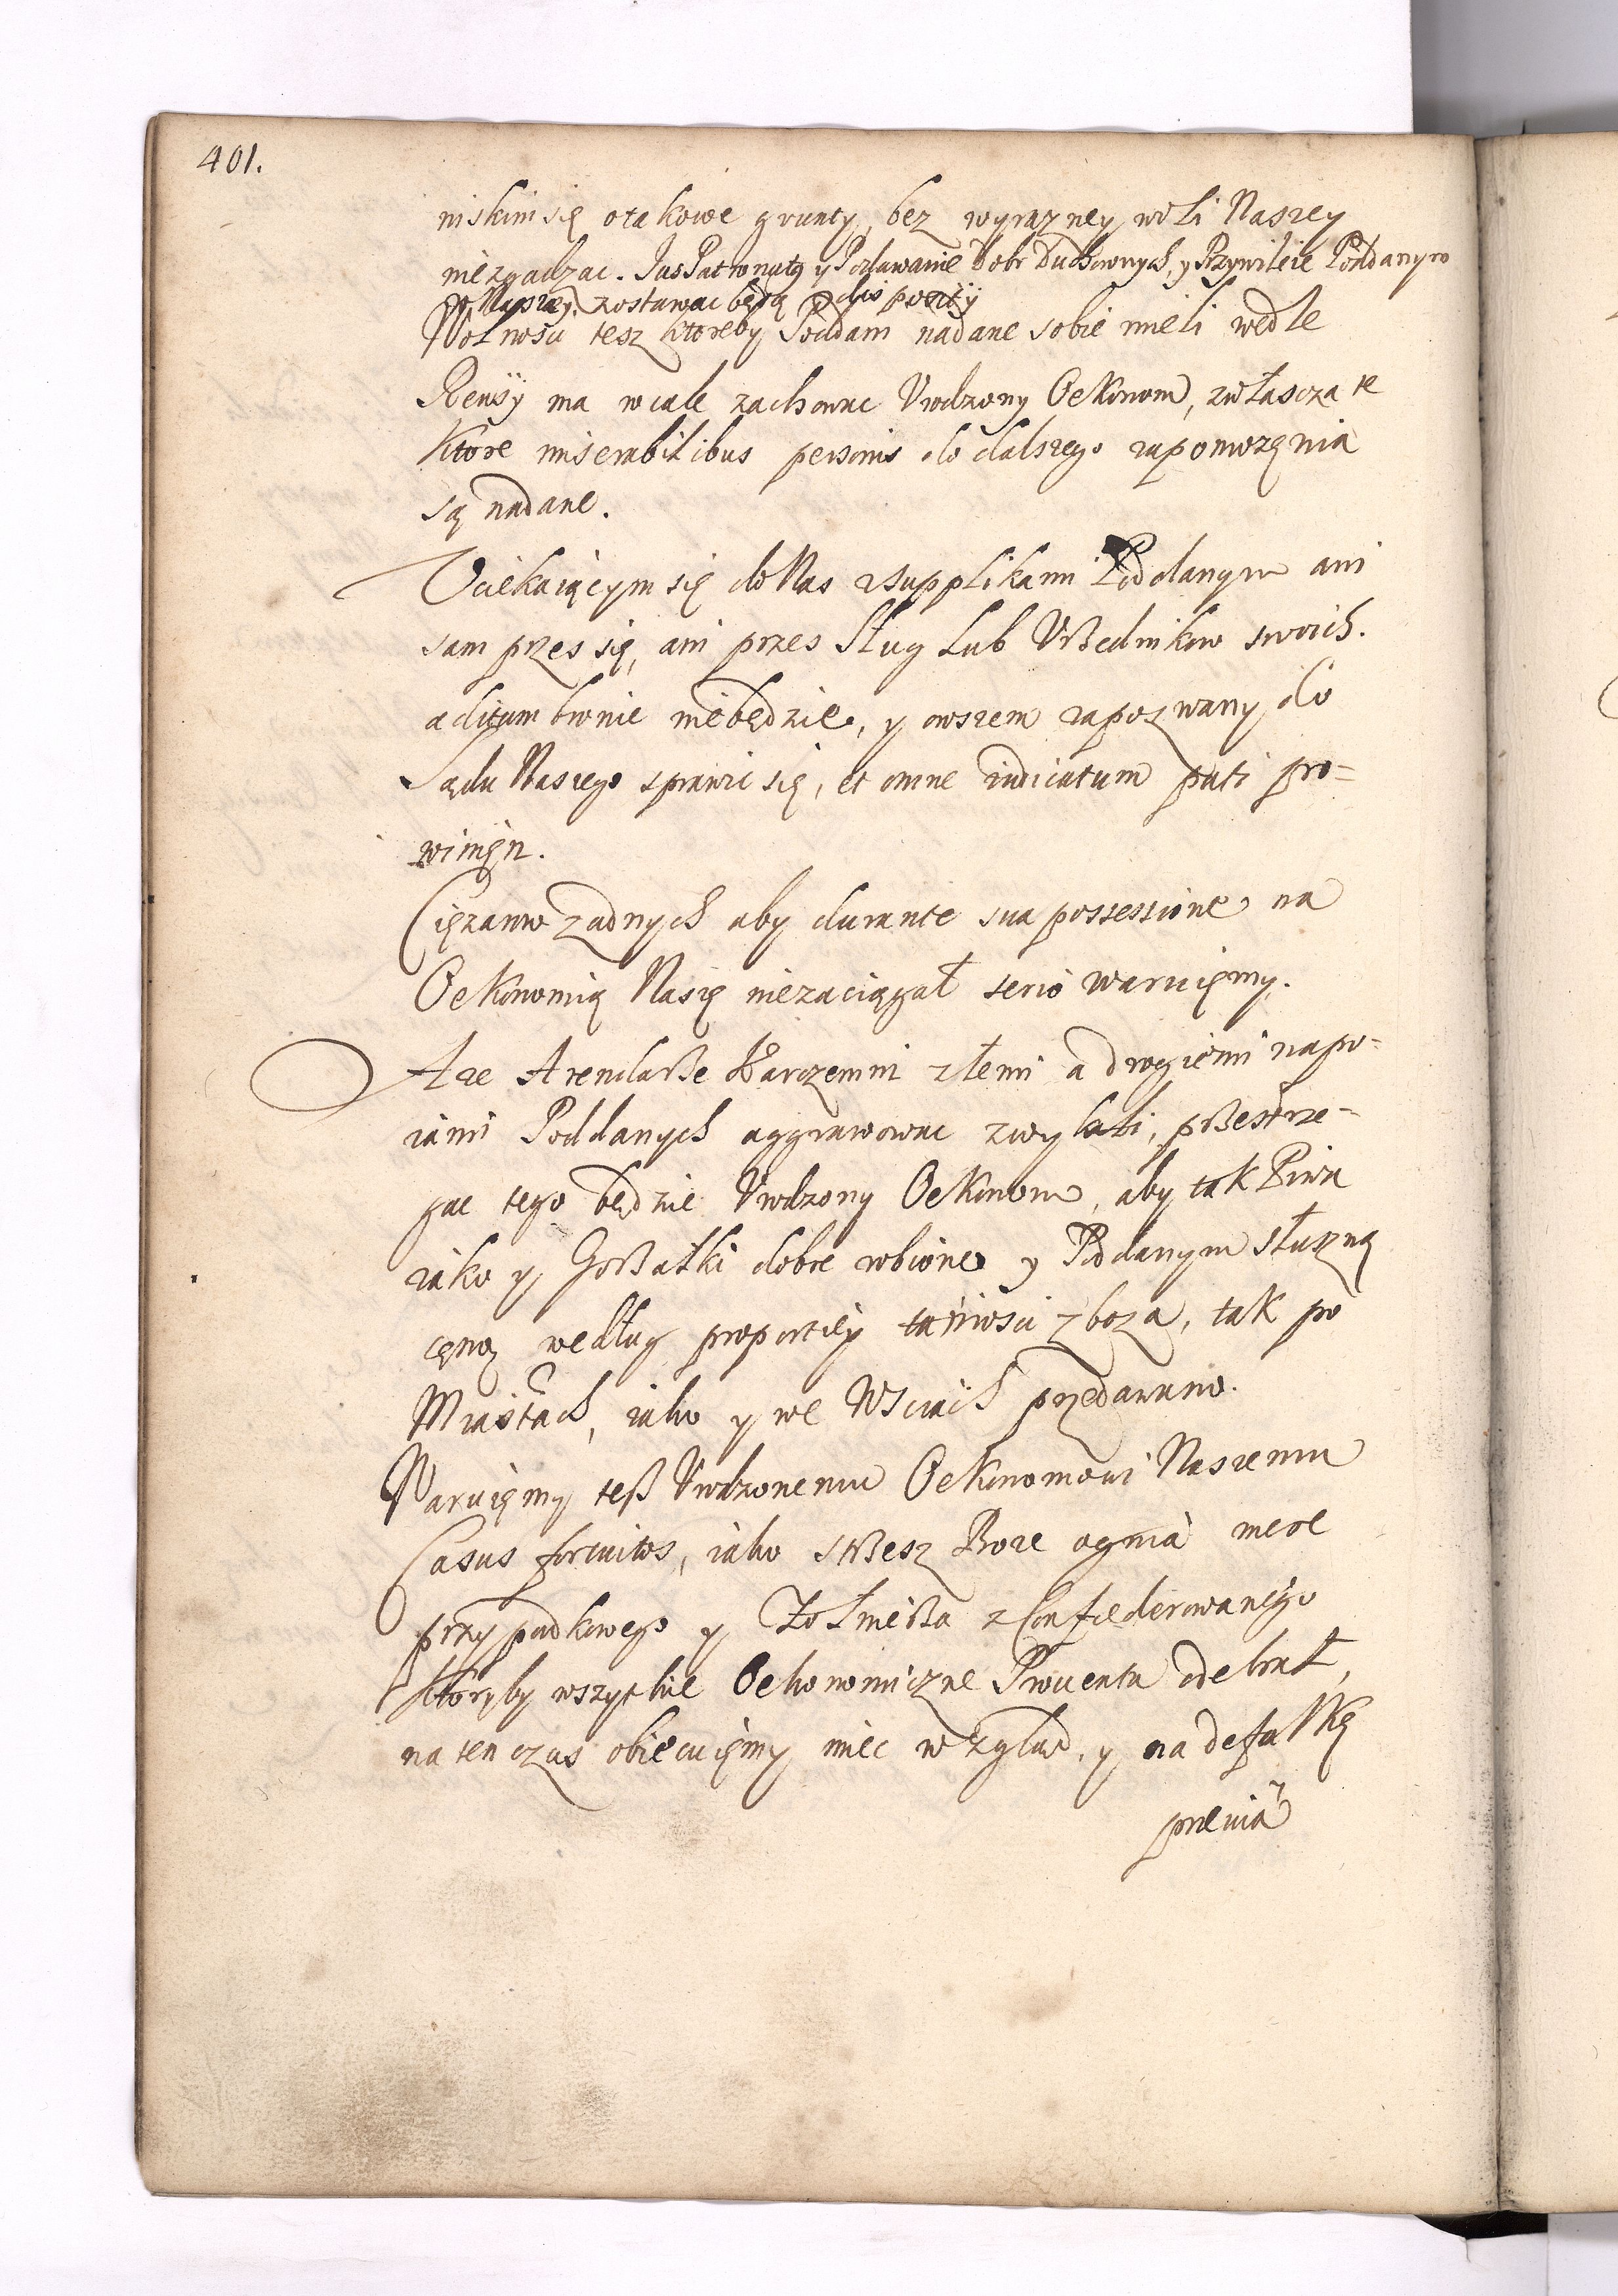 401.
niskim się otakowe grunty, bez wyrazney woli Naszey
niezgadzac. Jus Patronatq y Podawanie Dobr Duchownych, y Przywileie Poddanym
w Naszey zostawac będą dis pozitÿ
Wolnosci tesz ktoreby Poddani nadane sobie mieli wedle
Rewisÿ ma wcale zachowac Vrodzony Oekonom, zwłascza te
Ktore miserabilibus personis do dalszego zapomozęnia
są nadane.
Vciekaiącym się do Nas z supplikami Poddanym ani
sam przes się, ani przes Sług lub Vrßednikow swoich.
aditum bronic niebędzie, y owszem zapozwany do
Sądu Naszego sprawic się, et omne iudicatum pati pro=
winięn.
Cięzarow zadnych aby durante sua possessione na
Oekonomią Naszę niezaciągał serio waruięmy.
Aze Arendarße Karczemni złemi a drogiemi napo=
iami Poddanych aggrawowac zwykli, prßestrze=
gac tego będzie Vrodzony Oekonom, aby tak Piwa
iako y Gorßałki dobre robione y Poddanym słuszną
cęną według proporcÿi taniosci zboza, tak po
Miastach, iako y we Wsciach przedawano.
Waruięmy teß Vrodzonemu Oekonomowi Naszemu
Casus fortuitos, iako strßesz Boze ognia mere
przypadkowego y Zołnierßa zConfoederowanego
ktoryby wszytkie Oekonomiczne Prowenta odebrał,
na ten czas obiecuięmy miec wzglad, y na defalkę
prœuia